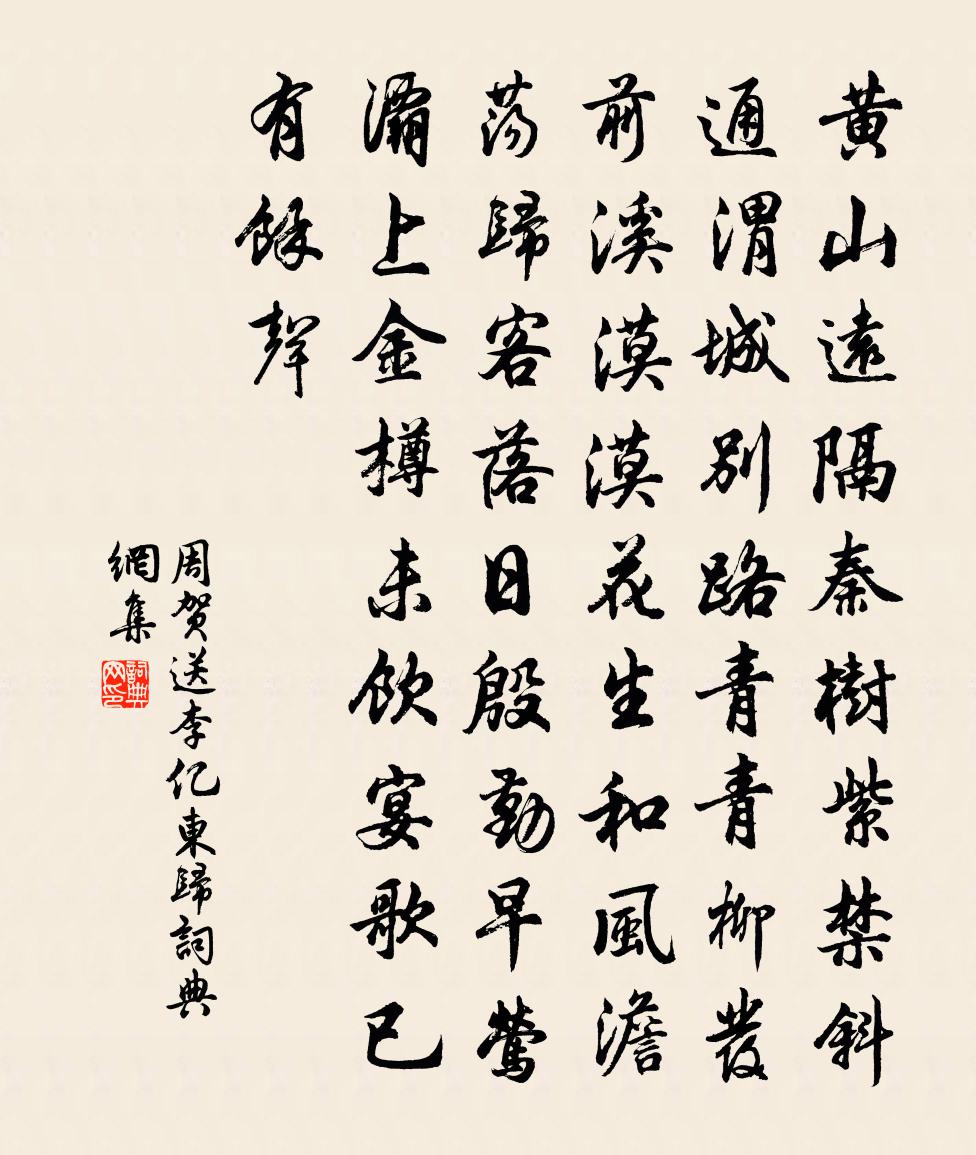 黄山遠隔秦樹紫禁斜
通渭城別路青青柳發
前溪漠漠花生和風澹
蕩歸客落日殷勤早鶯
灞上金樽未飲宴歌已
有餘聲
周賀送李亿東歸詞典
網集
詞典网印